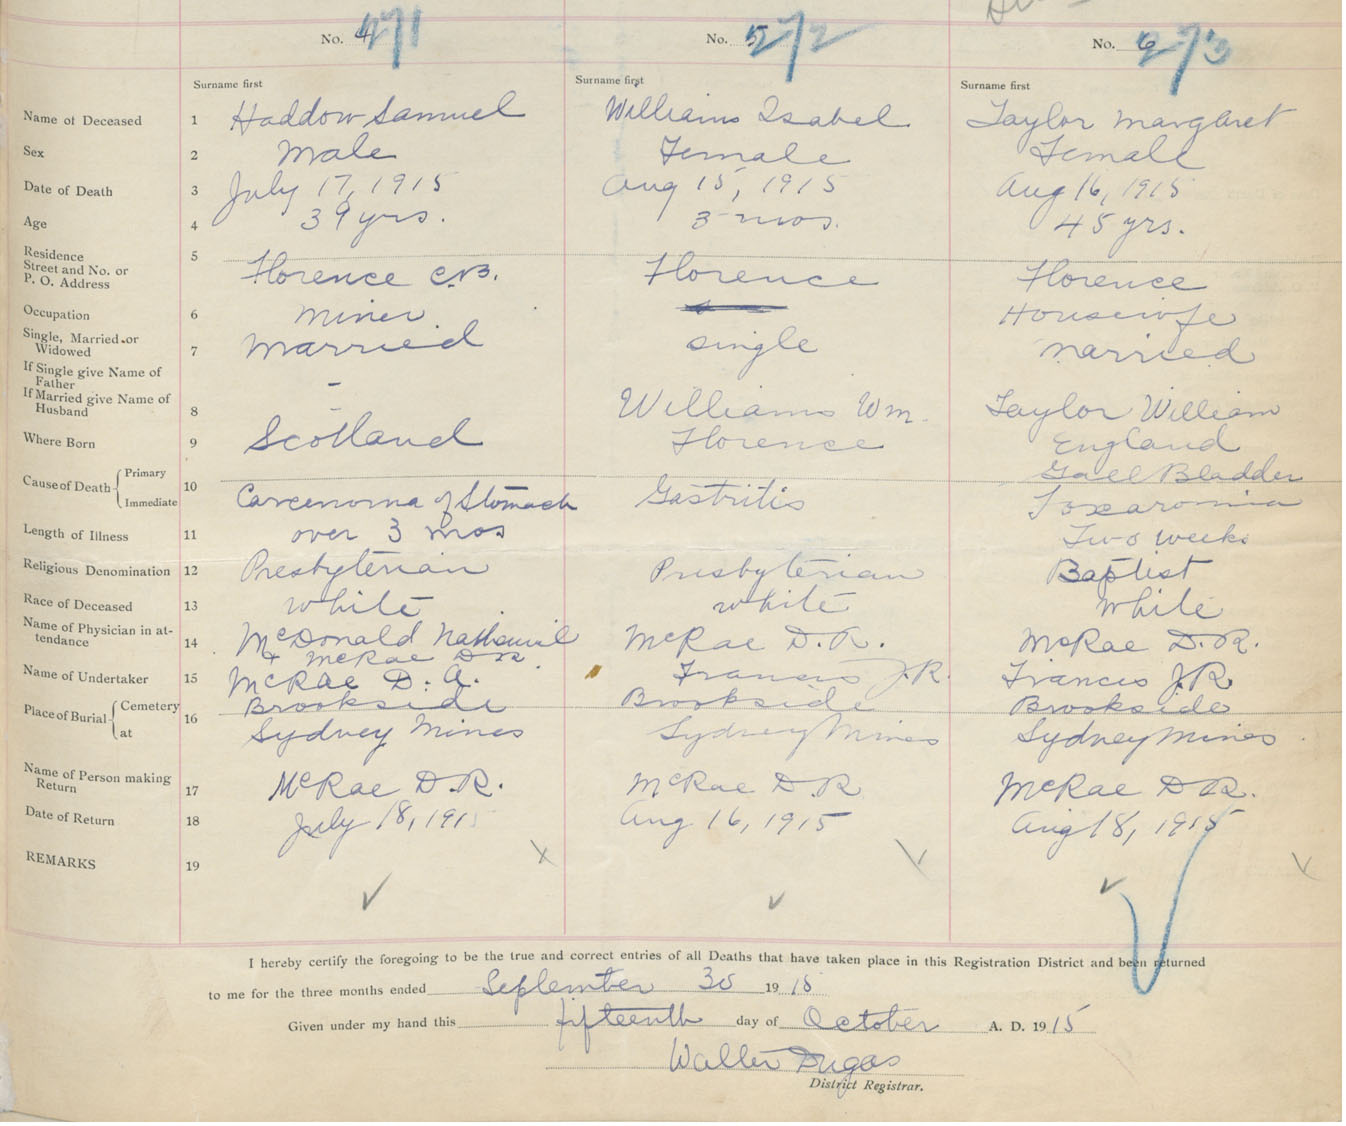 No. 4 271 No. 5 272 No. 6 273
Surname first Surname first Surname first
Name of Deceased 1 Haddow Samuel Williams Isabel Taylor Margaret
Sex 2 Male Female Female
Date of Death 3 July 17, 1915 Aug 15, 1915 Aug 16, 1915
Age 4 39 yrs. 3 mos. 45 yrs.
Residence
Street and No. or
P. O. Address 5 Florence C.B. Florence Florence
Occupation 6 Miner Housewife
Single, Married or
Widowed 7 Married Single Married
If Single give Name of
Father -
If Married give Name of
Husband 8 - Williams Wm. Taylor William
Where Born 9 Scotland Florence England
Cause of Death Primary Gall Bladder
Immediate 10 Carcenoma of Stomach Gastritis
Length of Illness 11 over 3 mos Two weeks
Religious Denomination 12 Presbyterian Presbyterian Baptist
Race of Deceased 13 White White White
Name of Physician in at-
tendance 14 McDonald Nathaniel McRae D.R. McRae D.R.
+ McRae D R.
Name of Undertaker 15 McRae D. A. Francis J.R. Francis J.R.
Place of Burial Cemetery Brookside Brookside Brookside
at 16 Sydney Mines Sydney Mines Sydney Mines
Name of Person making
Return 17 McRae D.R. McRae D.R McRae D R.
Date of Return 18 July 18, 1915 Aug 16, 1915 Aug 18, 1915
REMARKS 19
I hereby certify the foregoing to be the true and correct entries of all Deaths that have taken place in this Registration District and been returned
to me for the three months ended September 30 19 15
Given under my hand this fifteenth day of October A. D. 19 15
Walter Dugas
District Registrar.